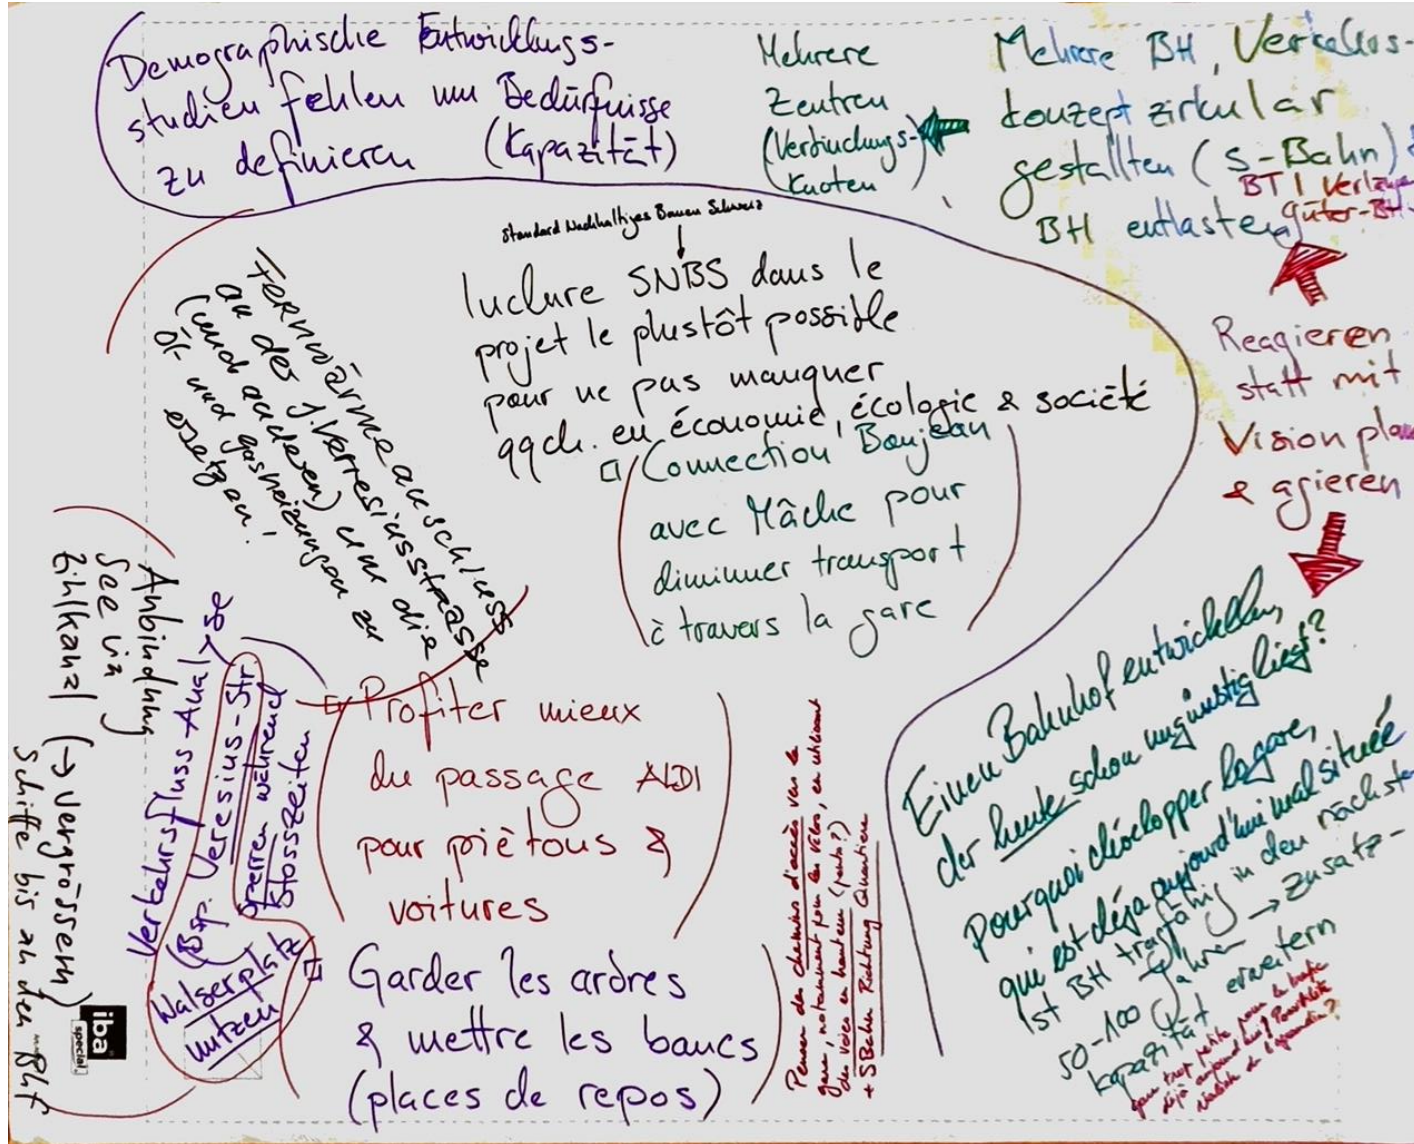 Demographische Entwicklungs-
studien fehlen um Bedürfnisse
zu definieren (Kapazität)
Mehrere
Zentren
(Verbindungs-
Knoten
Mehrere BH, Verkehrs-
konzept zirkulär
gestallten (S-Bahn)
BTI Verlänge
BH entlasten güter-BH
Reagieren
statt mit
Vision plan
& agieren
Standard Nachhaltiges Bauen Schweiz
Inclure SNBS dans le
projet le plustôt possible
pour ne pas manquer
qqch. en économie, écologie & société
Connection Boujean
avec Mâche pour
diminuer transport
à travers la gare
Fernwärmeanschluss
an der J.Verresiusstrasse
(und anderen) um die
Öl- und gasheizungen zu
ersetzen!
Anbindung
See via
Zihlkanal (→ Vergrössern)
Schiffe bis zu den Bhf
Verkehrsfluss Analyse
(Bsp. Veresius-Str
sperren während
Stosszeiten
Walserplatz
nutzen
Profiter mieux
du passage ALDI
pour piètons &
voitures
Garder les ardres
& mettre les bancs
(places de repos)
Penser des chemins d'accès vers la
gare, notamment pour les vélos, en utilisant
des voies en hauteur (ponts?)
+ SBecher Richtung Quartiere
Einen Bahnhof entwickeln,
der heute schon ungünstig liegt?
Pourquoi développer la gare,
qui est déjà aujourd'hui mal située
Ist BH tragfähig in den nächste
50-100 Jahren → Zusatz-
kapazität erweitern
gare trop petite pour le trafic
déjà aujourd'hui? Possibilité
réaliste de l'agrandir?
iba
special